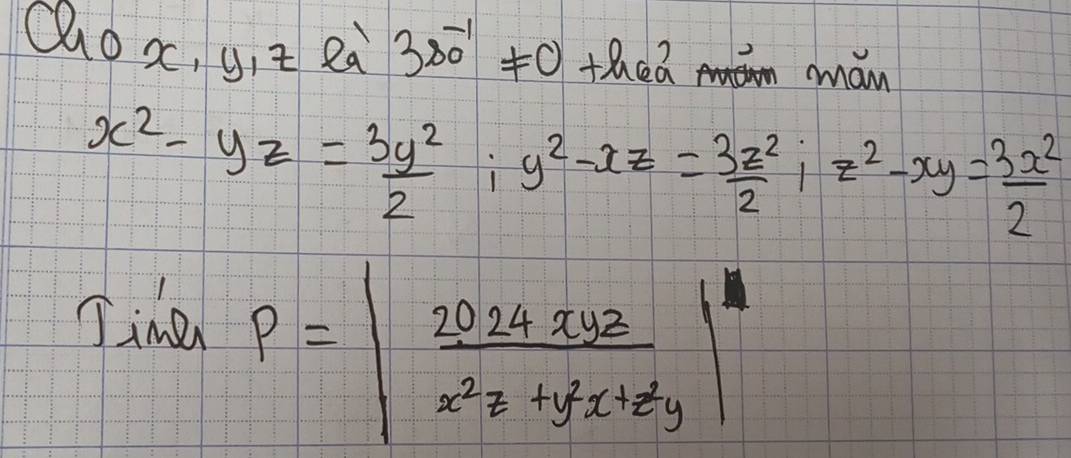 Cho x, y, z là 3 số ≠0 thoả mãn
x² - yz = 3y²/2 ; y² - xz = 3z²/2 ; z² - xy = 3x²/2
Tính P = | 2024 xyz / x²z + y²x + z²y |